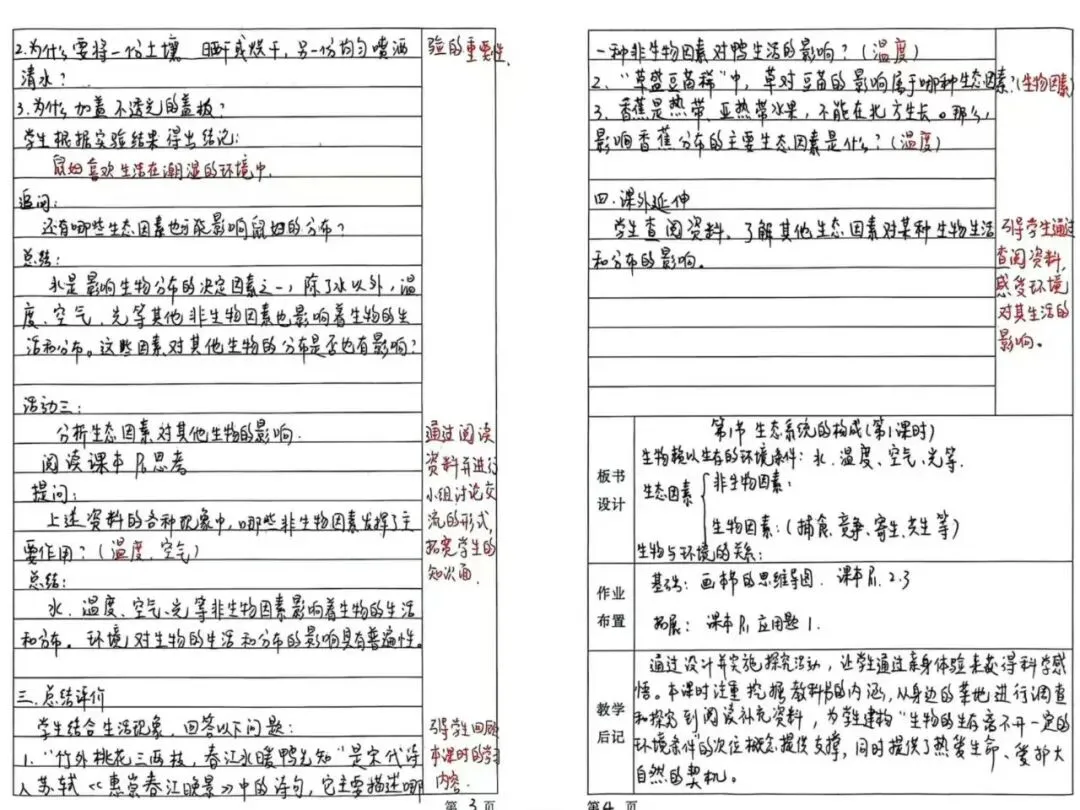 2.为什么要将一份土壤 晒干或烘干,另一份均匀喷洒
清水?
3.为什么加盖不透光的盖板?
学生根据实验结果得出结论:
鼠妇喜欢生活在潮湿的环境中.
追问:
还有哪些生态因素也可能影响鼠妇的分布?
总结:
水是影响生物分布的决定因素之一,除了水以外,温
度、空气、光等其他非生物因素也影响着生物的生
活和分布。这些因素对其他生物的分布是否也有影响?
活动三:
分析生态因素对其他生物的影响.
阅读课本 思考
提问:
上述资料的各种现象中,哪些非生物因素发挥了主
要作用?(温度、空气)
总结:
水、温度、空气、光等非生物因素影响着生物的生活
和分布. 环境对生物的生活和分布的影响具有普遍性.
三.总结评价
学生结合生活现象,回答以下问题:
1."竹外桃花三两枝,春江水暖鸭先知"是宋代诗
人苏轼《惠崇春江晚景》中的诗句,它主要描述哪
验的重要性.
通过阅读
资料并进行
小组讨论交
流的形式,
拓宽学生的
知识面.
引导学生回顾
本课时的学习
内容.
第 3 页
一种非生物因素对鸭生活的影响?(温度)
2."草盛豆苗稀"中,草对豆苗的影响属于哪种生态因素?(生物因素)
3.香蕉是热带、亚热带水果,不能在北方生长。那么,
影响香蕉分布的主要生态因素是什么?(温度)
四.课外延伸
学生查阅资料,了解其他生态因素对某种生物生活
和分布的影响。
引导学生通过
查阅资料,
感受环境
对其生活的
影响。
板书
设计
第1节 生态系统的构成(第1课时)
生物赖以生存的环境条件: 水、温度、空气、光等.
生态因素
非生物因素:
生物因素:(捕食、竞争、寄生、共生等)
生物与环境的关系:
作业
布置
基础: 画本节的思维导图. 课本 1.2.3
拓展: 课本 应用题1.
教学
后记
通过设计并实施探究活动,让学生通过亲身体验来获得科学感
悟。本课时注重挖掘教科书的内涵,从身边的菜地进行调查
和探究到阅读补充资料,为学生建构"生物的生存离不开一定的
环境条件"的次位概念提供支撑,同时提供了热爱生命、爱护大
自然的契机。
第 4 页